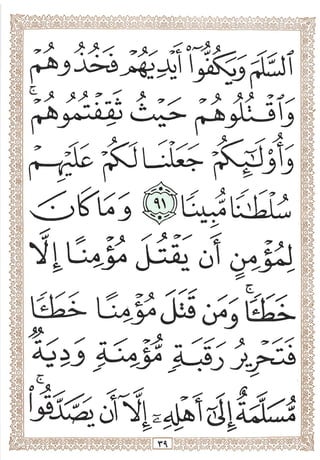 ٱلسَّلَمَ وَيَكُفُّوٓا۟ أَيْدِيَهُمْ فَخُذُوهُمْ
وَٱقْتُلُوهُمْ حَيْثُ ثَقِفْتُمُوهُمْ ۚ
وَأُو۟لَـٰٓئِكُمْ جَعَلْنَا لَكُمْ عَلَيْهِمْ
سُلْطَـٰنًا مُّبِينًا ٩١ وَمَا كَانَ
لِمُؤْمِنٍ أَن يَقْتُلَ مُؤْمِنًا إِلَّا
خَطَـًٔا ۚ وَمَن قَتَلَ مُؤْمِنًا خَطَـًٔا
فَتَحْرِيرُ رَقَبَةٍ مُّؤْمِنَةٍ وَدِيَةٌ
مُّسَلَّمَةٌ إِلَىٰٓ أَهْلِهِۦٓ إِلَّآ أَن يَصَّدَّقُوا۟ ۚ
٣٩